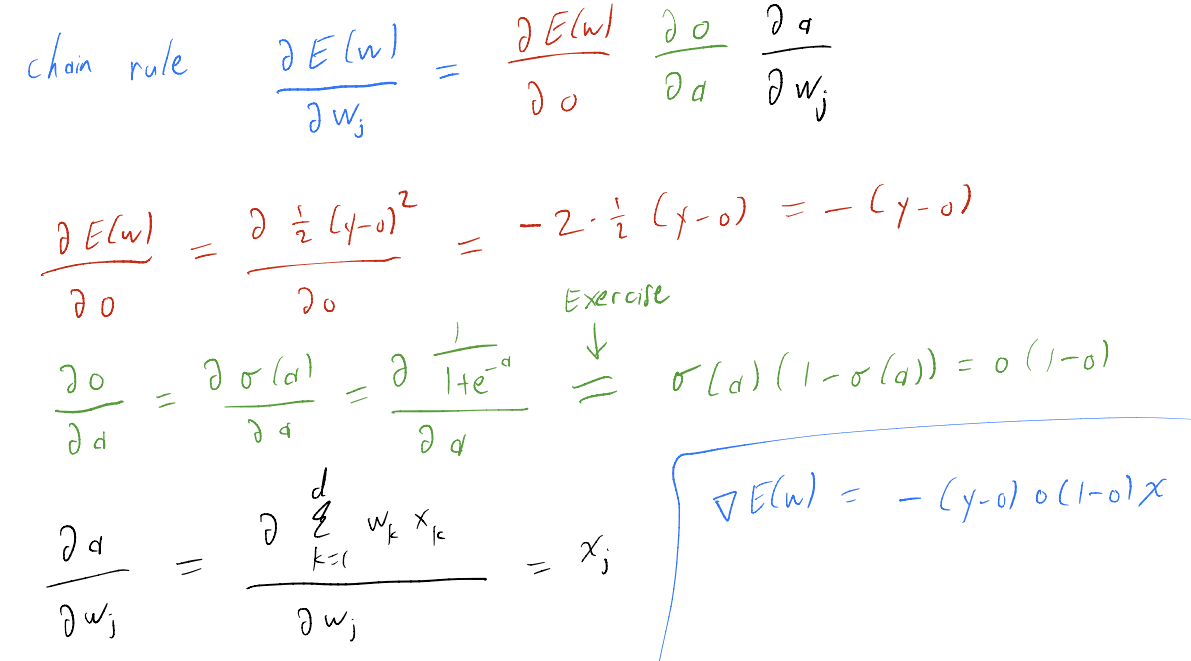 chain rule ∂E(w)/∂w_j = ∂E(w)/∂o ∂o/∂a ∂a/∂w_j
∂E(w)/∂o = ∂ ½ (y-o)²/∂o = -2 · ½ (y-o) = - (y-o)
Exercise
↓
∂o/∂a = ∂σ(a)/∂a = ∂ 1/(1+e^-a)/∂a = σ(a)(1-σ(a)) = o(1-o)
∇E(w) = - (y-o) o(1-o) x
∂a/∂w_j = ∂ Σ_{k=1}^{d} w_k x_k/∂w_j = x_j